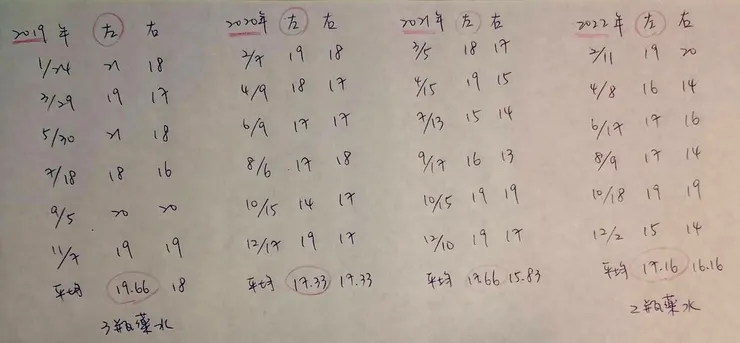 2019年 左 右
1/24 21 18
3/29 19 17
5/30 21 18
7/18 18 16
9/5 20 20
11/7 19 19
平均 19.66 18
3瓶藥水
2020年 左 右
2/7 19 18
4/9 18 17
6/9 17 17
8/6 17 18
10/15 14 17
12/17 19 17
平均 17.33 17.33
2021年 左 右
3/5 18 17
4/15 19 15
7/13 15 14
9/17 16 13
10/15 19 19
12/10 19 17
平均 17.66 15.83
2022年 左 右
2/11 19 20
4/8 16 14
6/17 17 16
8/9 17 14
10/18 19 19
12/2 15 14
平均 17.16 16.16
2瓶藥水